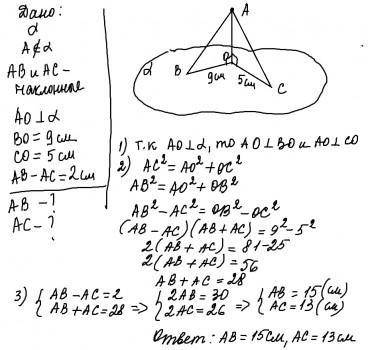 Дано:
α
A∉α
AB и AC –
наклонные
AO⊥α
BO = 9 см
CO = 5 см
AB – AC = 2 см
AB – ?
AC – ?
A
O
α
B
9 см
5 см
C
1) т.к AO⊥α, то AO⊥BO и AO⊥CO
2) AC² = AO² + OC²
AB² = AO² + OB²
AB² – AC² = OB² – OC²
(AB – AC)(AB + AC) = 9² – 5²
2(AB + AC) = 81 – 25
2(AB + AC) = 56
AB + AC = 28
3) { AB – AC = 2 => { 2AB = 30 => { AB = 15 (см)
AB + AC = 28 2AC = 26 AC = 13 (см)
Ответ: AB = 15 см, AC = 13 см